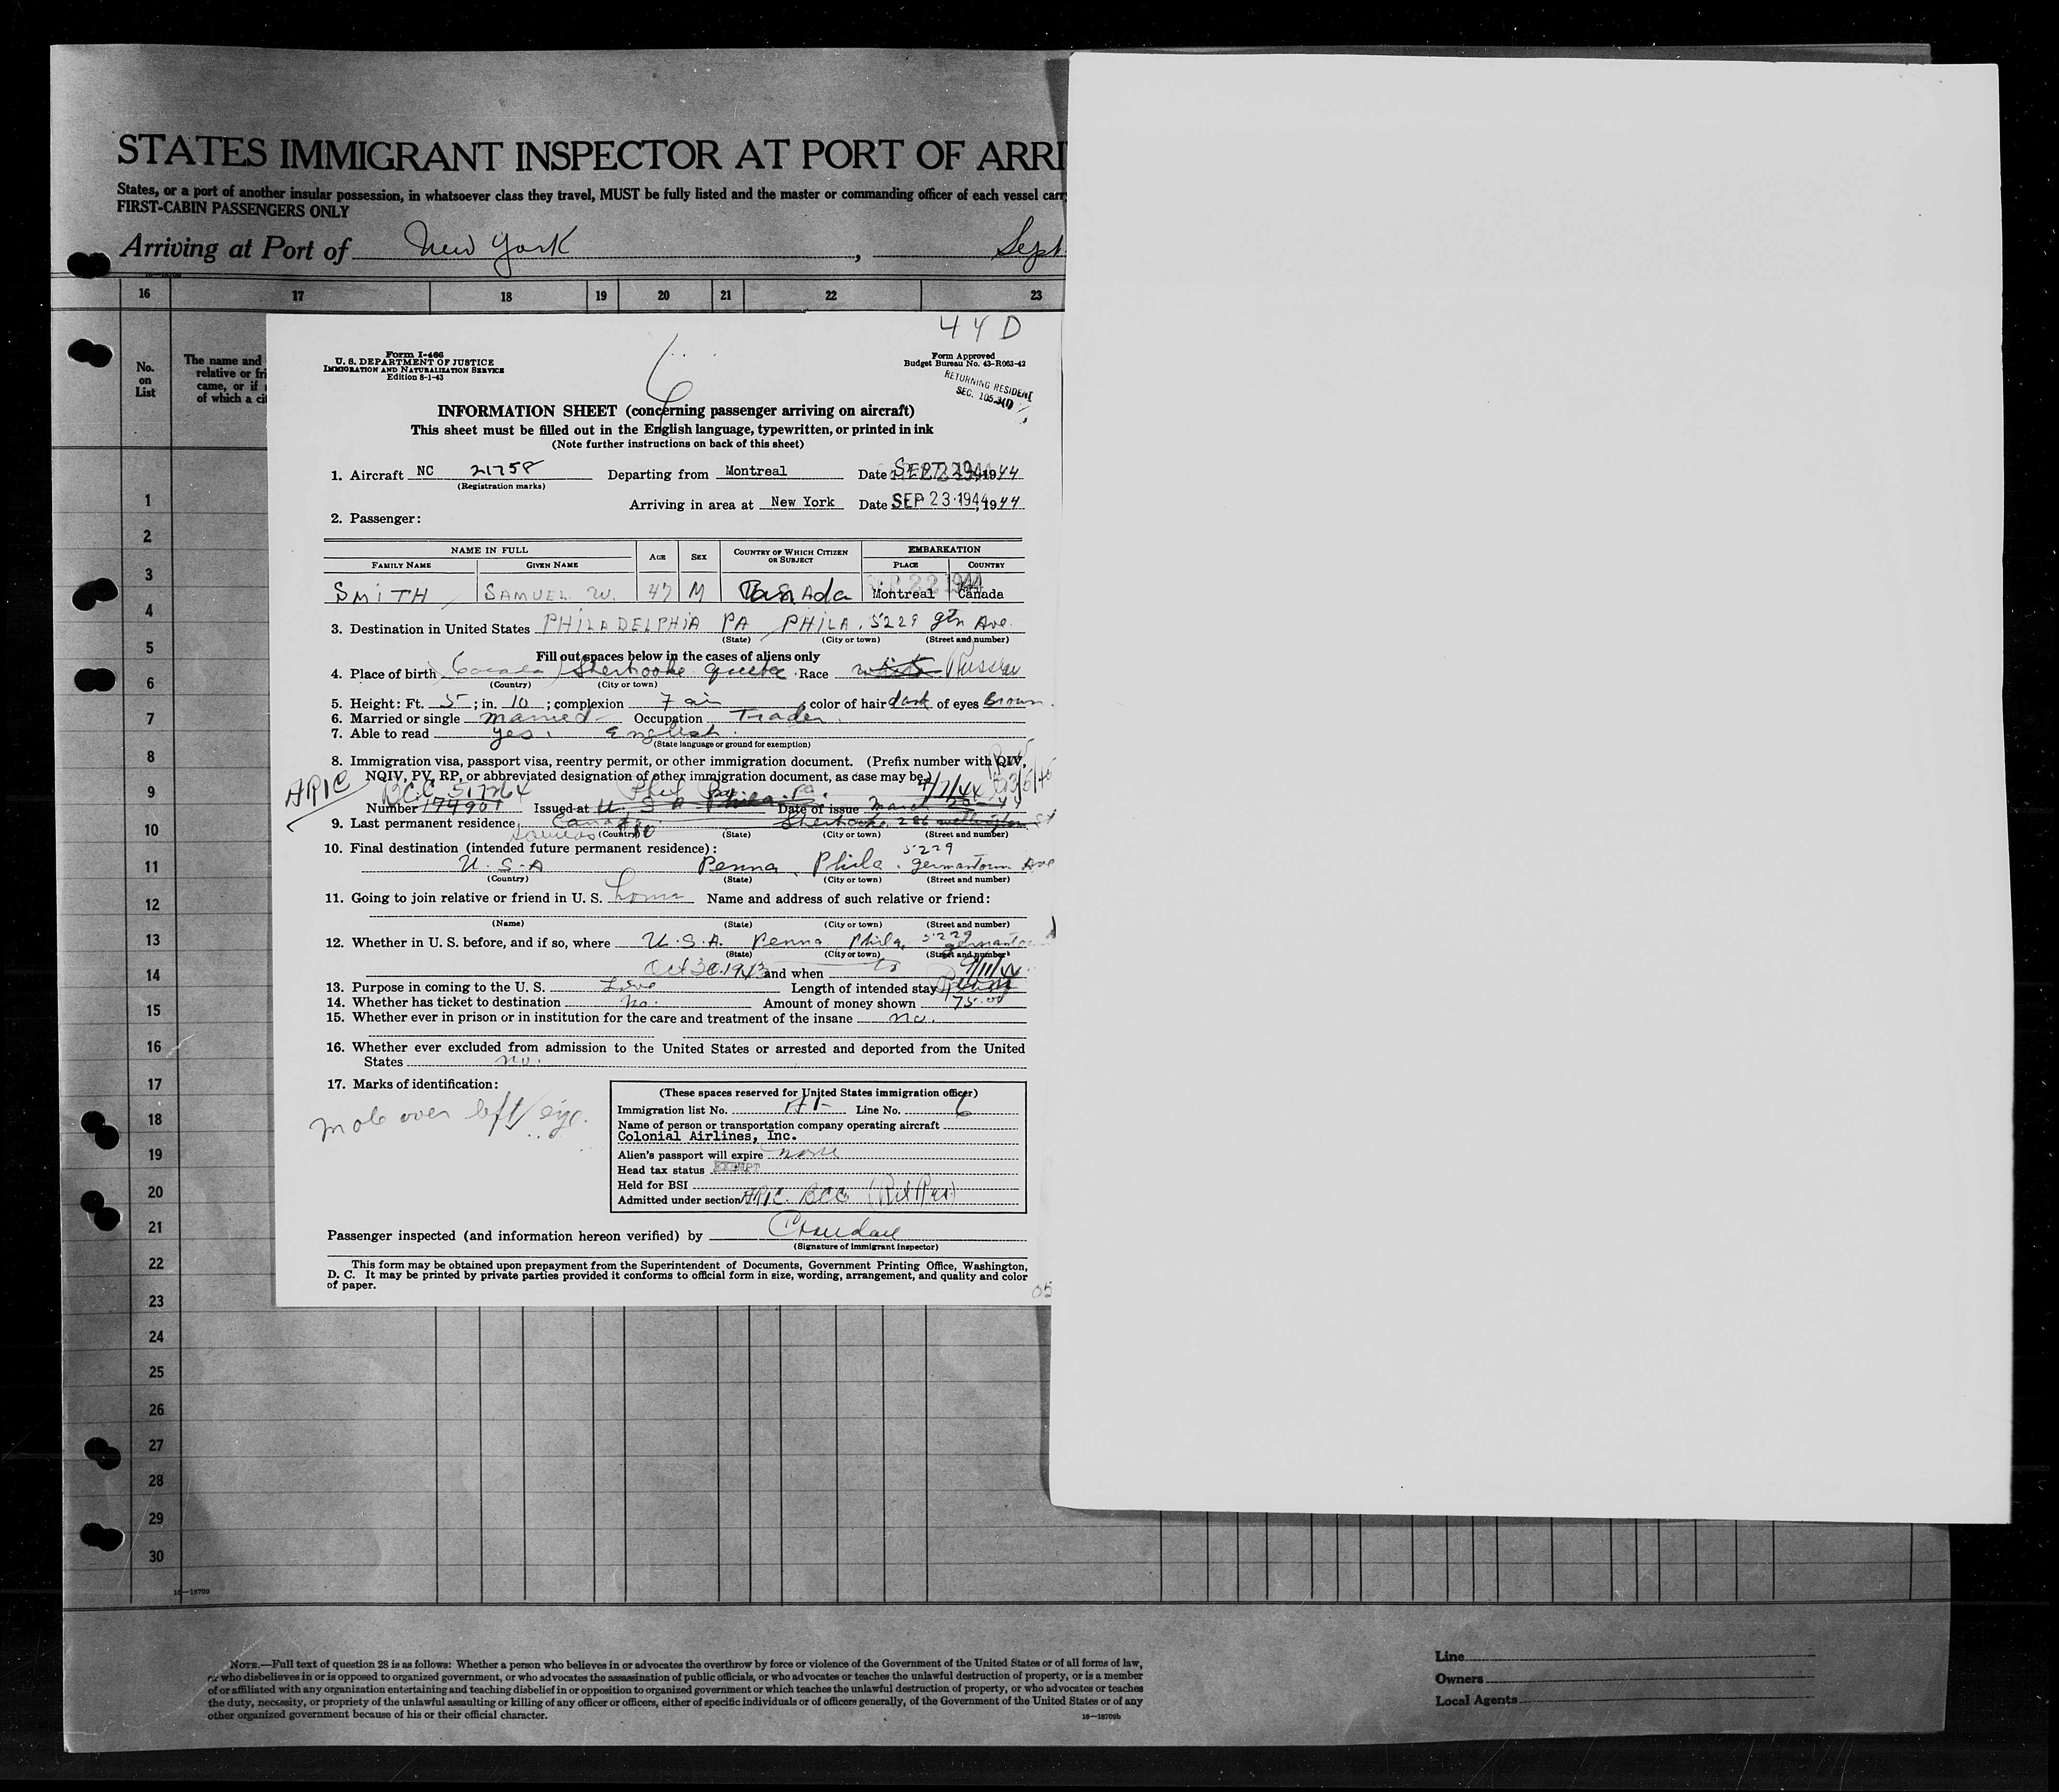 STATES IMMIGRANT INSPECTOR AT PORT OF ARRI
States, or a port of another insular possession, in whatsoever class they travel, MUST be fully listed and the master or commanding officer of each vessel carr
FIRST-CABIN PASSENGERS ONLY
Arriving at Port of New York, Sept
16 17 18 19 20 21 22 23
No. on List
The name and
relative or fri
came, or if
of which a cit
44D
6
Form I-466
U. S. DEPARTMENT OF JUSTICE
IMMIGRATION AND NATURALIZATION SERVICE
Edition 8-1-43
Form Approved
Budget Bureau No. 43-R063-42
RETURNING RESIDENT
SEC. 105.3(1)
INFORMATION SHEET (concerning passenger arriving on aircraft)
This sheet must be filled out in the English language, typewritten, or printed in ink
(Note further instructions on back of this sheet)
1. Aircraft NC 21758 Departing from Montreal Date 1944
(Registration marks)
Arriving in area at New York Date SEP 23 1944, 1944
2. Passenger:
NAME IN FULL AGE SEX COUNTRY OF WHICH CITIZEN OR SUBJECT EMBARKATION
FAMILY NAME GIVEN NAME PLACE COUNTRY
SMITH SAMUEL W. 47 M Canada Montreal Canada
3. Destination in United States PHILADELPHIA PA PHILA. 5229 Gtn Ave.
(State) (City or town) (Street and number)
Fill out spaces below in the cases of aliens only
4. Place of birth Canada Sherbrooke Quebec Race Russian
(Country) (City or town)
5. Height: Ft. 5; in. 10; complexion Fair; color of hair dark of eyes Brown.
6. Married or single married Occupation Trader.
7. Able to read yes. English.
(State language or ground for exemption)
8. Immigration visa, passport visa, reentry permit, or other immigration document. (Prefix number with QIV,
NQIV, PV, RP, or abbreviated designation of other immigration document, as case may be)
ARIC
BCC 517264 Phil Pa
Number 174901 Issued at U.S.A Phila. Pa. Date of issue March
9. Last permanent residence Canada Sherbrooke, 286 Wellington St
(Country) (State) (City or town) (Street and number)
10. Final destination (intended future permanent residence):
5229
U.S.A Penna, Phila. Germantown Ave
(Country) (State) (City or town) (Street and number)
11. Going to join relative or friend in U. S. home Name and address of such relative or friend:
(Name) (State) (City or town) (Street and number)
12. Whether in U. S. before, and if so, where U.S.A. Penna Phila, 5229 Germantown
(State) (City or town) (Street and number)
Oct 30.1943 and when to 9/11/44
13. Purpose in coming to the U. S. Live Length of intended stay
14. Whether has ticket to destination No. Amount of money shown 75.00
15. Whether ever in prison or in institution for the care and treatment of the insane no.
16. Whether ever excluded from admission to the United States or arrested and deported from the United
States no.
17. Marks of identification:
mole over left eye.
(These spaces reserved for United States immigration officer)
Immigration list No. Line No. 6
Name of person or transportation company operating aircraft
Colonial Airlines, Inc.
Alien's passport will expire none
Head tax status EXEMPT
Held for BSI
Admitted under section ARIC. BCC (Ret Res)
Passenger inspected (and information hereon verified) by
(Signature of immigrant inspector)
This form may be obtained upon prepayment from the Superintendent of Documents, Government Printing Office, Washington,
D. C. It may be printed by private parties provided it conforms to official form in size, wording, arrangement, and quality and color
of paper.
1
2
3
4
5
6
7
8
9
10
11
12
13
14
15
16
17
18
19
20
21
22
23
24
25
26
27
28
29
30
16—18709
NOTE.—Full text of question 28 is as follows: Whether a person who believes in or advocates the overthrow by force or violence of the Government of the United States or of all forms of law,
or who disbelieves in or is opposed to organized government, or who advocates the assassination of public officials, or who advocates or teaches the unlawful destruction of property, or is a member
of or affiliated with any organization entertaining and teaching disbelief in or opposition to organized government or which teaches the unlawful destruction of property, or who advocates or teaches
the duty, necessity, or propriety of the unlawful assaulting or killing of any officer or officers, either of specific individuals or of officers generally, of the Government of the United States or of any
other organized government because of his or their official character.
16—18709b
Line
Owners
Local Agents